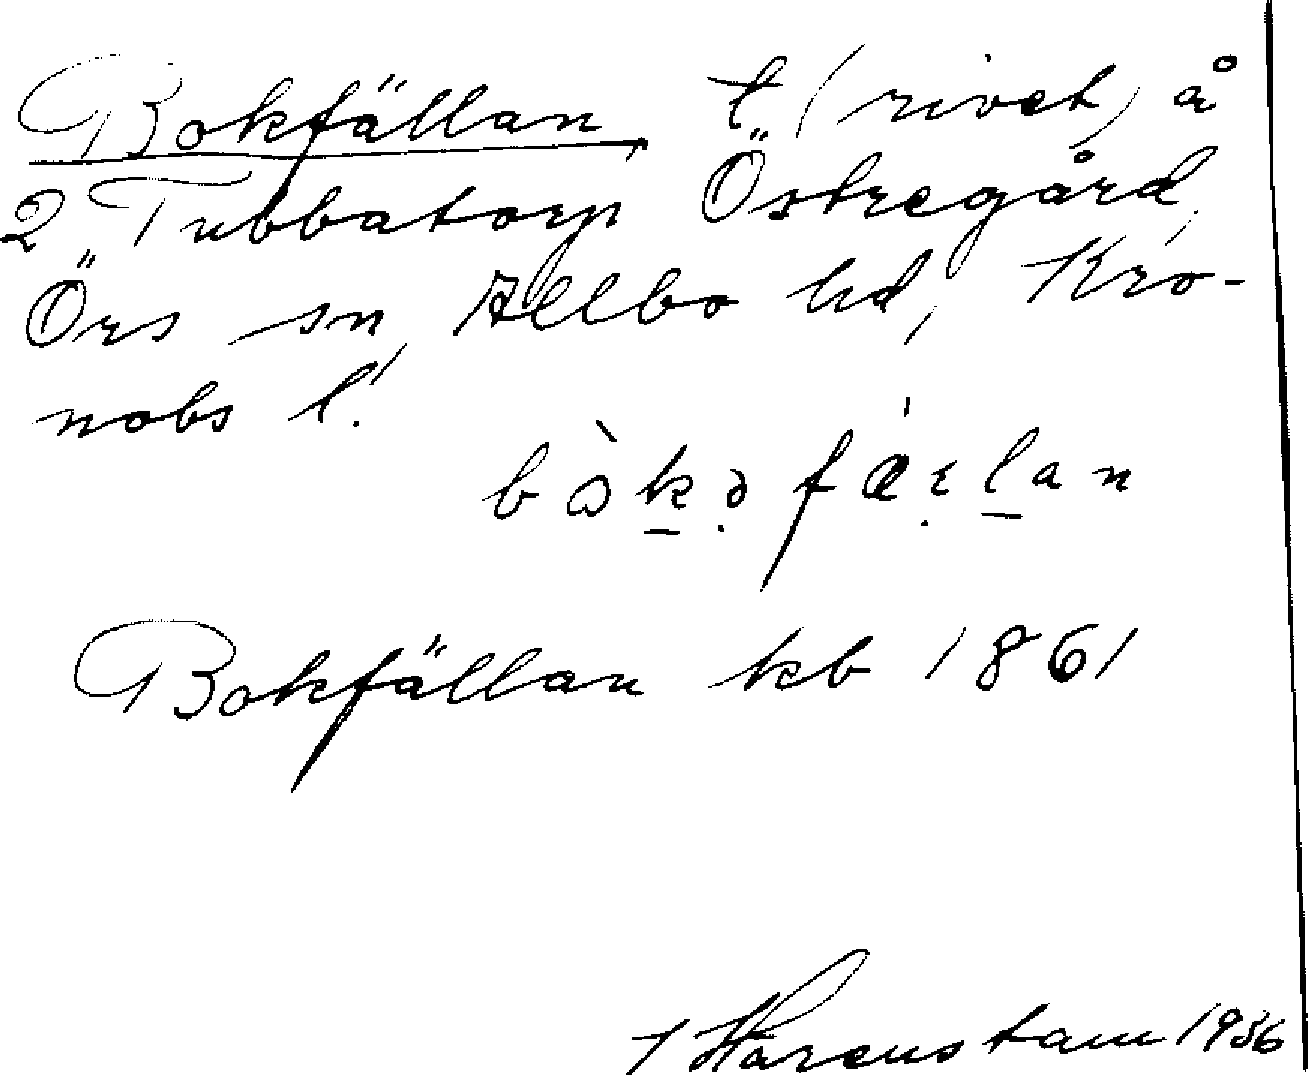 Bokfällan, t (rivet) å
2 Tubbatorp Östregård,
Örs sn, Allbo hd, Kro-
nobs l.
Bokfällan kb 1861
Harenstam 1936